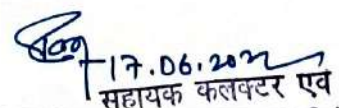 17.06.2022
सहायक कलक्टर एवं